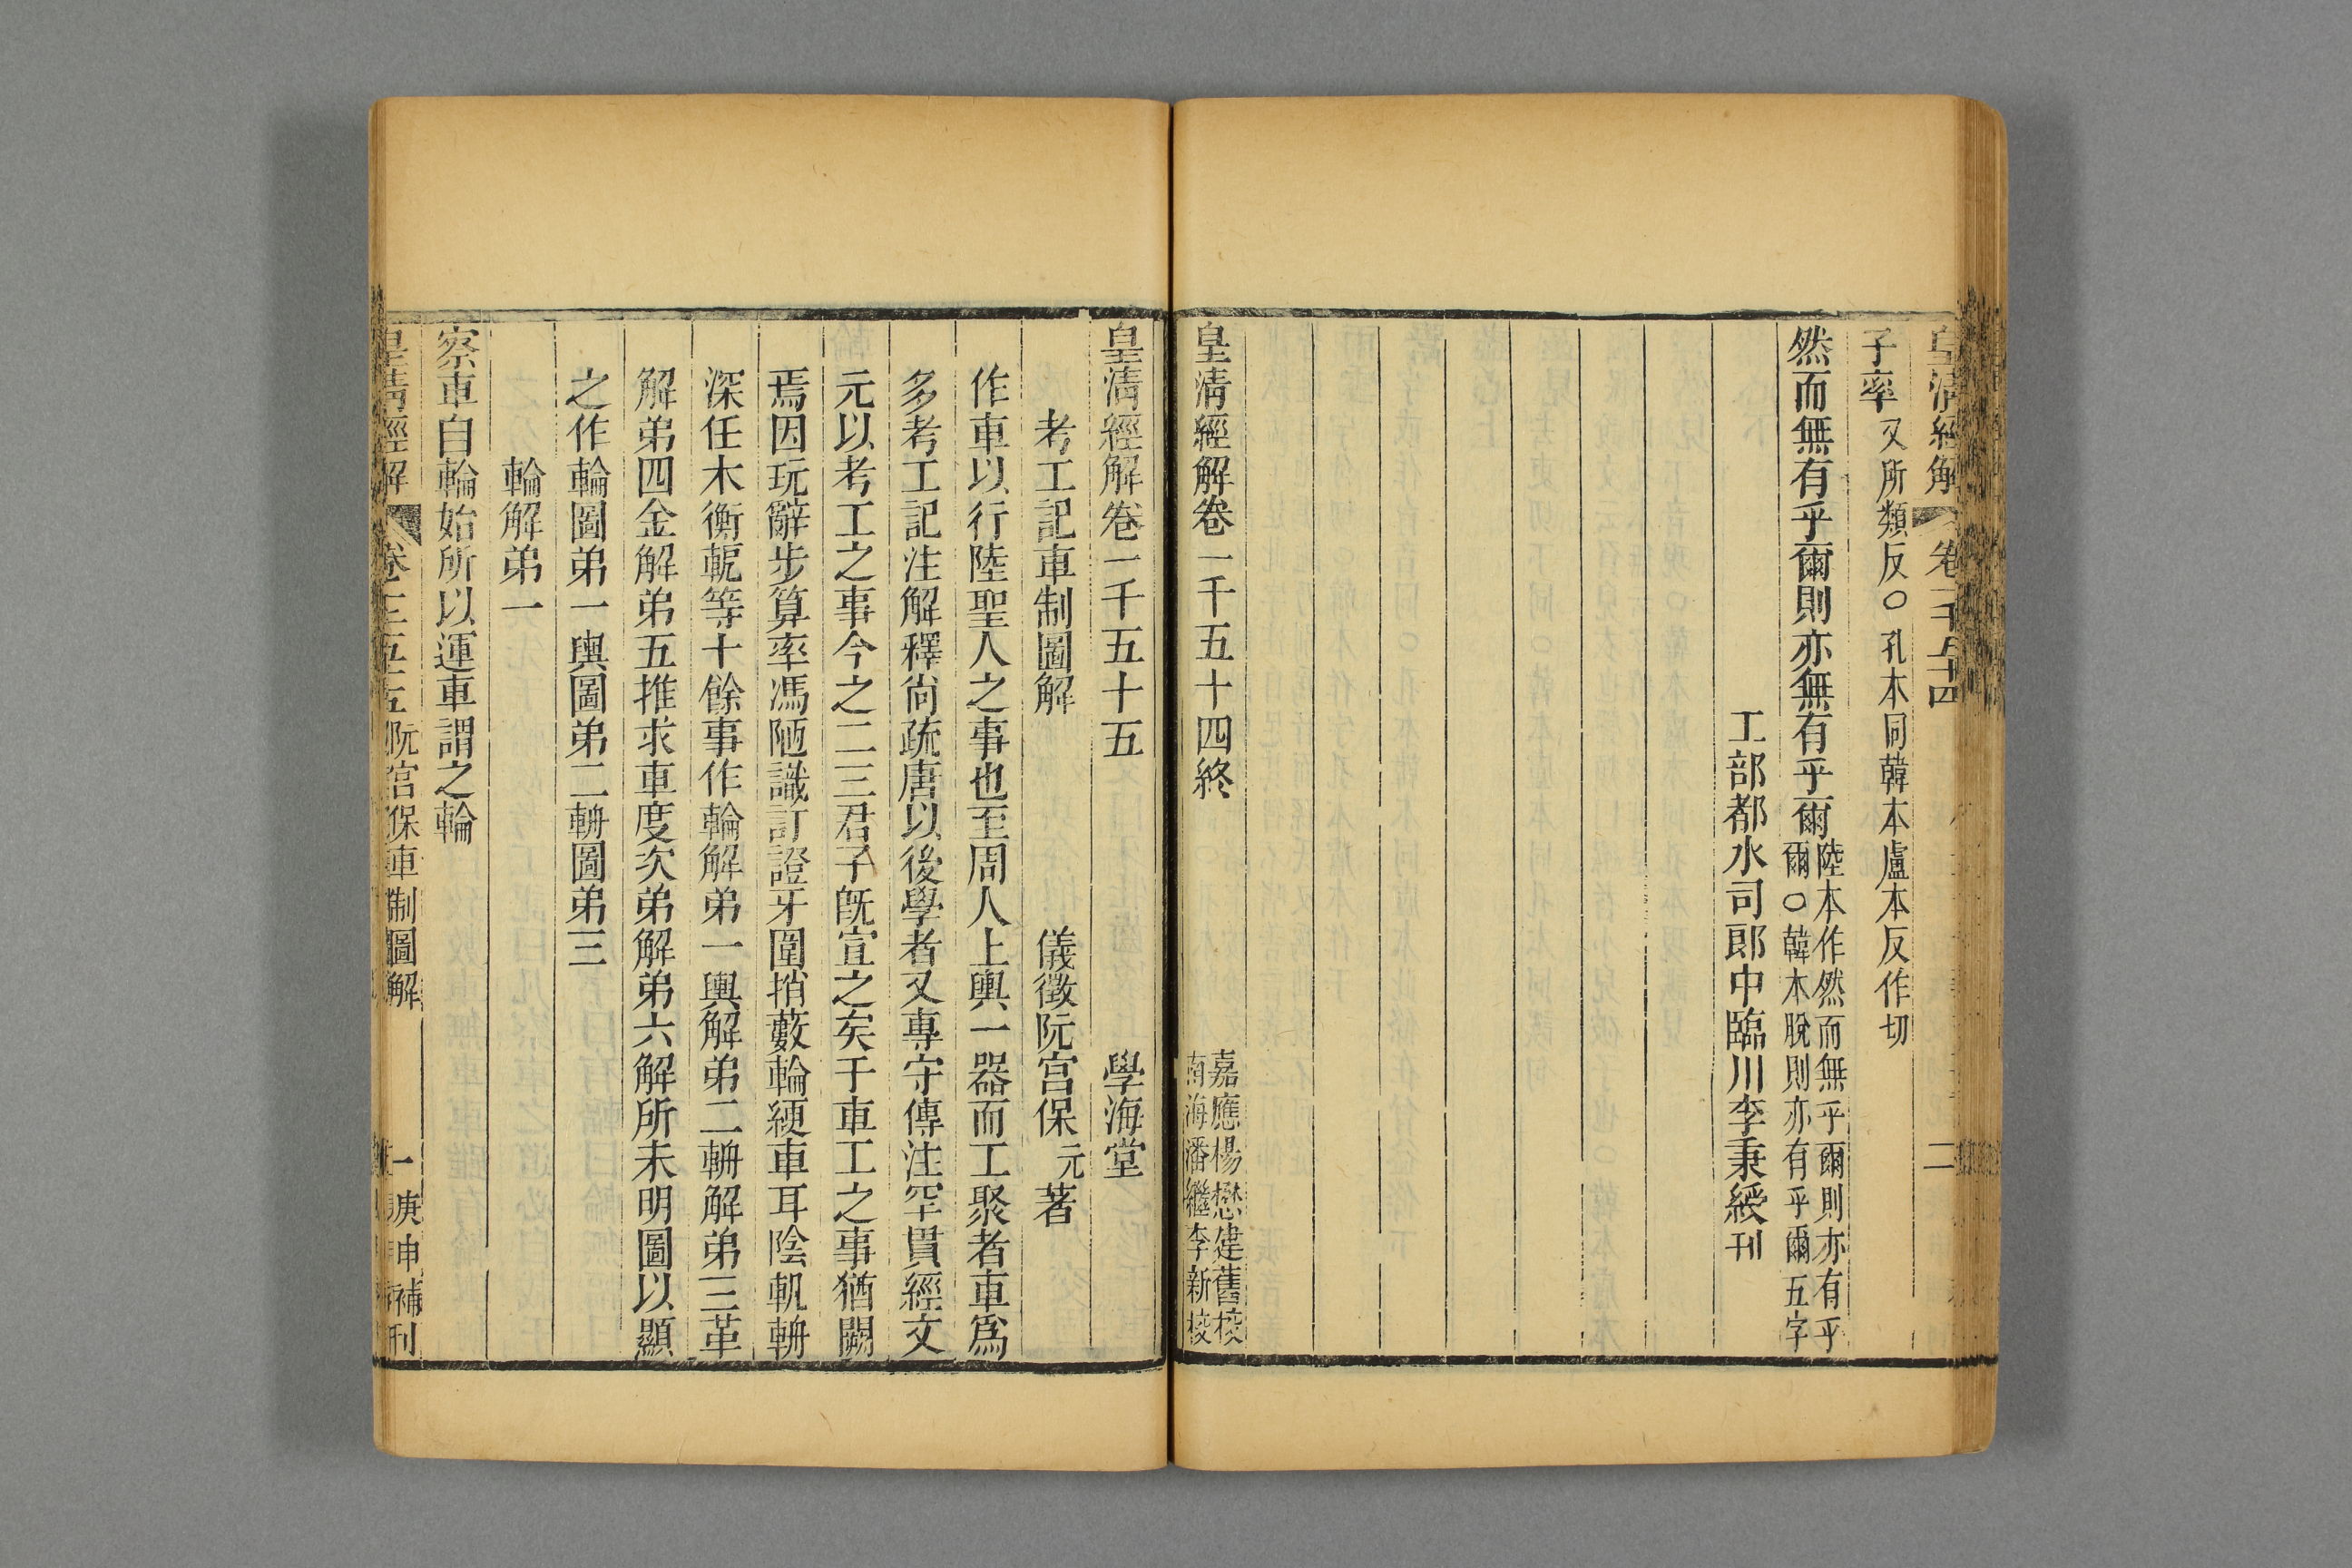 皇清經解 卷一千五十四 二
子率又所類反〇孔本同韓本盧本反作切
然而無有乎爾則亦無有乎爾陸本作然而無乎爾則亦有乎爾〇韓本脫則亦有乎爾五字
工部都水司郎中臨川李秉綬刊
皇清經解卷一千五十四終
嘉應楊懋建舊校
南海潘繼李新校
皇清經解卷一千五十五 學海堂
考工記車制圖解 儀徵阮宮保元著
作車以行陸聖人之事也至周人上輿一器而工聚者車爲
多考工記注解釋尙疏唐以後學者又專守傳注罕貫經文
元以考工之事今之二三君子旣宣之矣于車工之事猶闕
焉因玩辭步算率馮陋識訂證牙圍捎藪輪綆車耳陰軓輈
深任木衡軛等十餘事作輪解弟一輿解弟二輈解弟三革
解弟四金解弟五推求車度次弟解弟六解所未明圖以顯
之作輪圖弟一輿圖弟二輈圖弟三
輪解弟一
察車自輪始所以運車謂之輪
皇清經解 卷 阮宮保車制圖解 一 庚申補刊